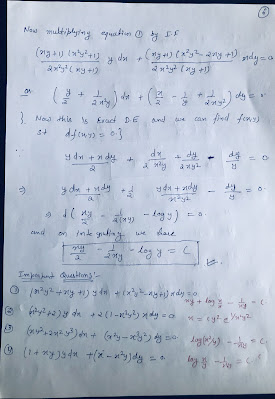 Now multiplying equation ① by I.F
(xy+1)(x²y²+1) / 2x²y²(xy+1) y dx + (xy+1)(x²y²-2xy+1) / 2x²y²(xy+1) x dy = 0
or (y/2 + 1/2x²y) dx + (x/2 - 1/y + 1/2xy²) dy = 0
}. Now this is Exact D.E and we can find f(x,y)
st df(x,y) = 0 }
y dx + x dy / 2 + dx / 2x²y + dy / 2xy² - dy / y = 0
⇒ y dx + x dy / 2 + 1/2 y dx + x dy / x²y² - dy / y = 0
⇒ d( xy/2 - 1/2(xy) - log y ) = 0
and on integrating we have
xy/2 - 1/2xy - log y = C
Important Questions:-
① (x²y²+xy+1) y dx + (x²y²-xy+1) x dy = 0 xy + log x/y - 1/xy = C
② y dx + 2(1-x²y²) dy = 0 x = cy² e^1/x²y²
③ (xy²+2x²y³) dx + (x²y-x³y²) dy = 0 log(x²/y) - 1/xy = C
④ (1+xy) y dx + (x-x²y) dy = 0 log x/y - 1/xy = C